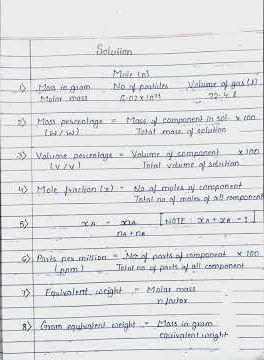 Solution
Mole (n)
1) Mass in gram No of particles Volume of gas (l)
Molar mass 6.02x10²³ 22.4 l
2) Mass percentage = Mass of component in sol x 100
(w/w) Total mass of solution
3) Volume percentage = Volume of component x 100
(v/v) Total volume of solution
4) Mole fraction (x) = No of moles of component
Total no of moles of all component
5) xA = nA [NOTE : xA + xB = 1]
nA + nB
6) Parts per million = No of parts of component x
(ppm) Total no of parts of all component
7) Equivalent weight = Molar mass
n factor
8) Gram equivalent weight = Mass in gram
equivalent weight